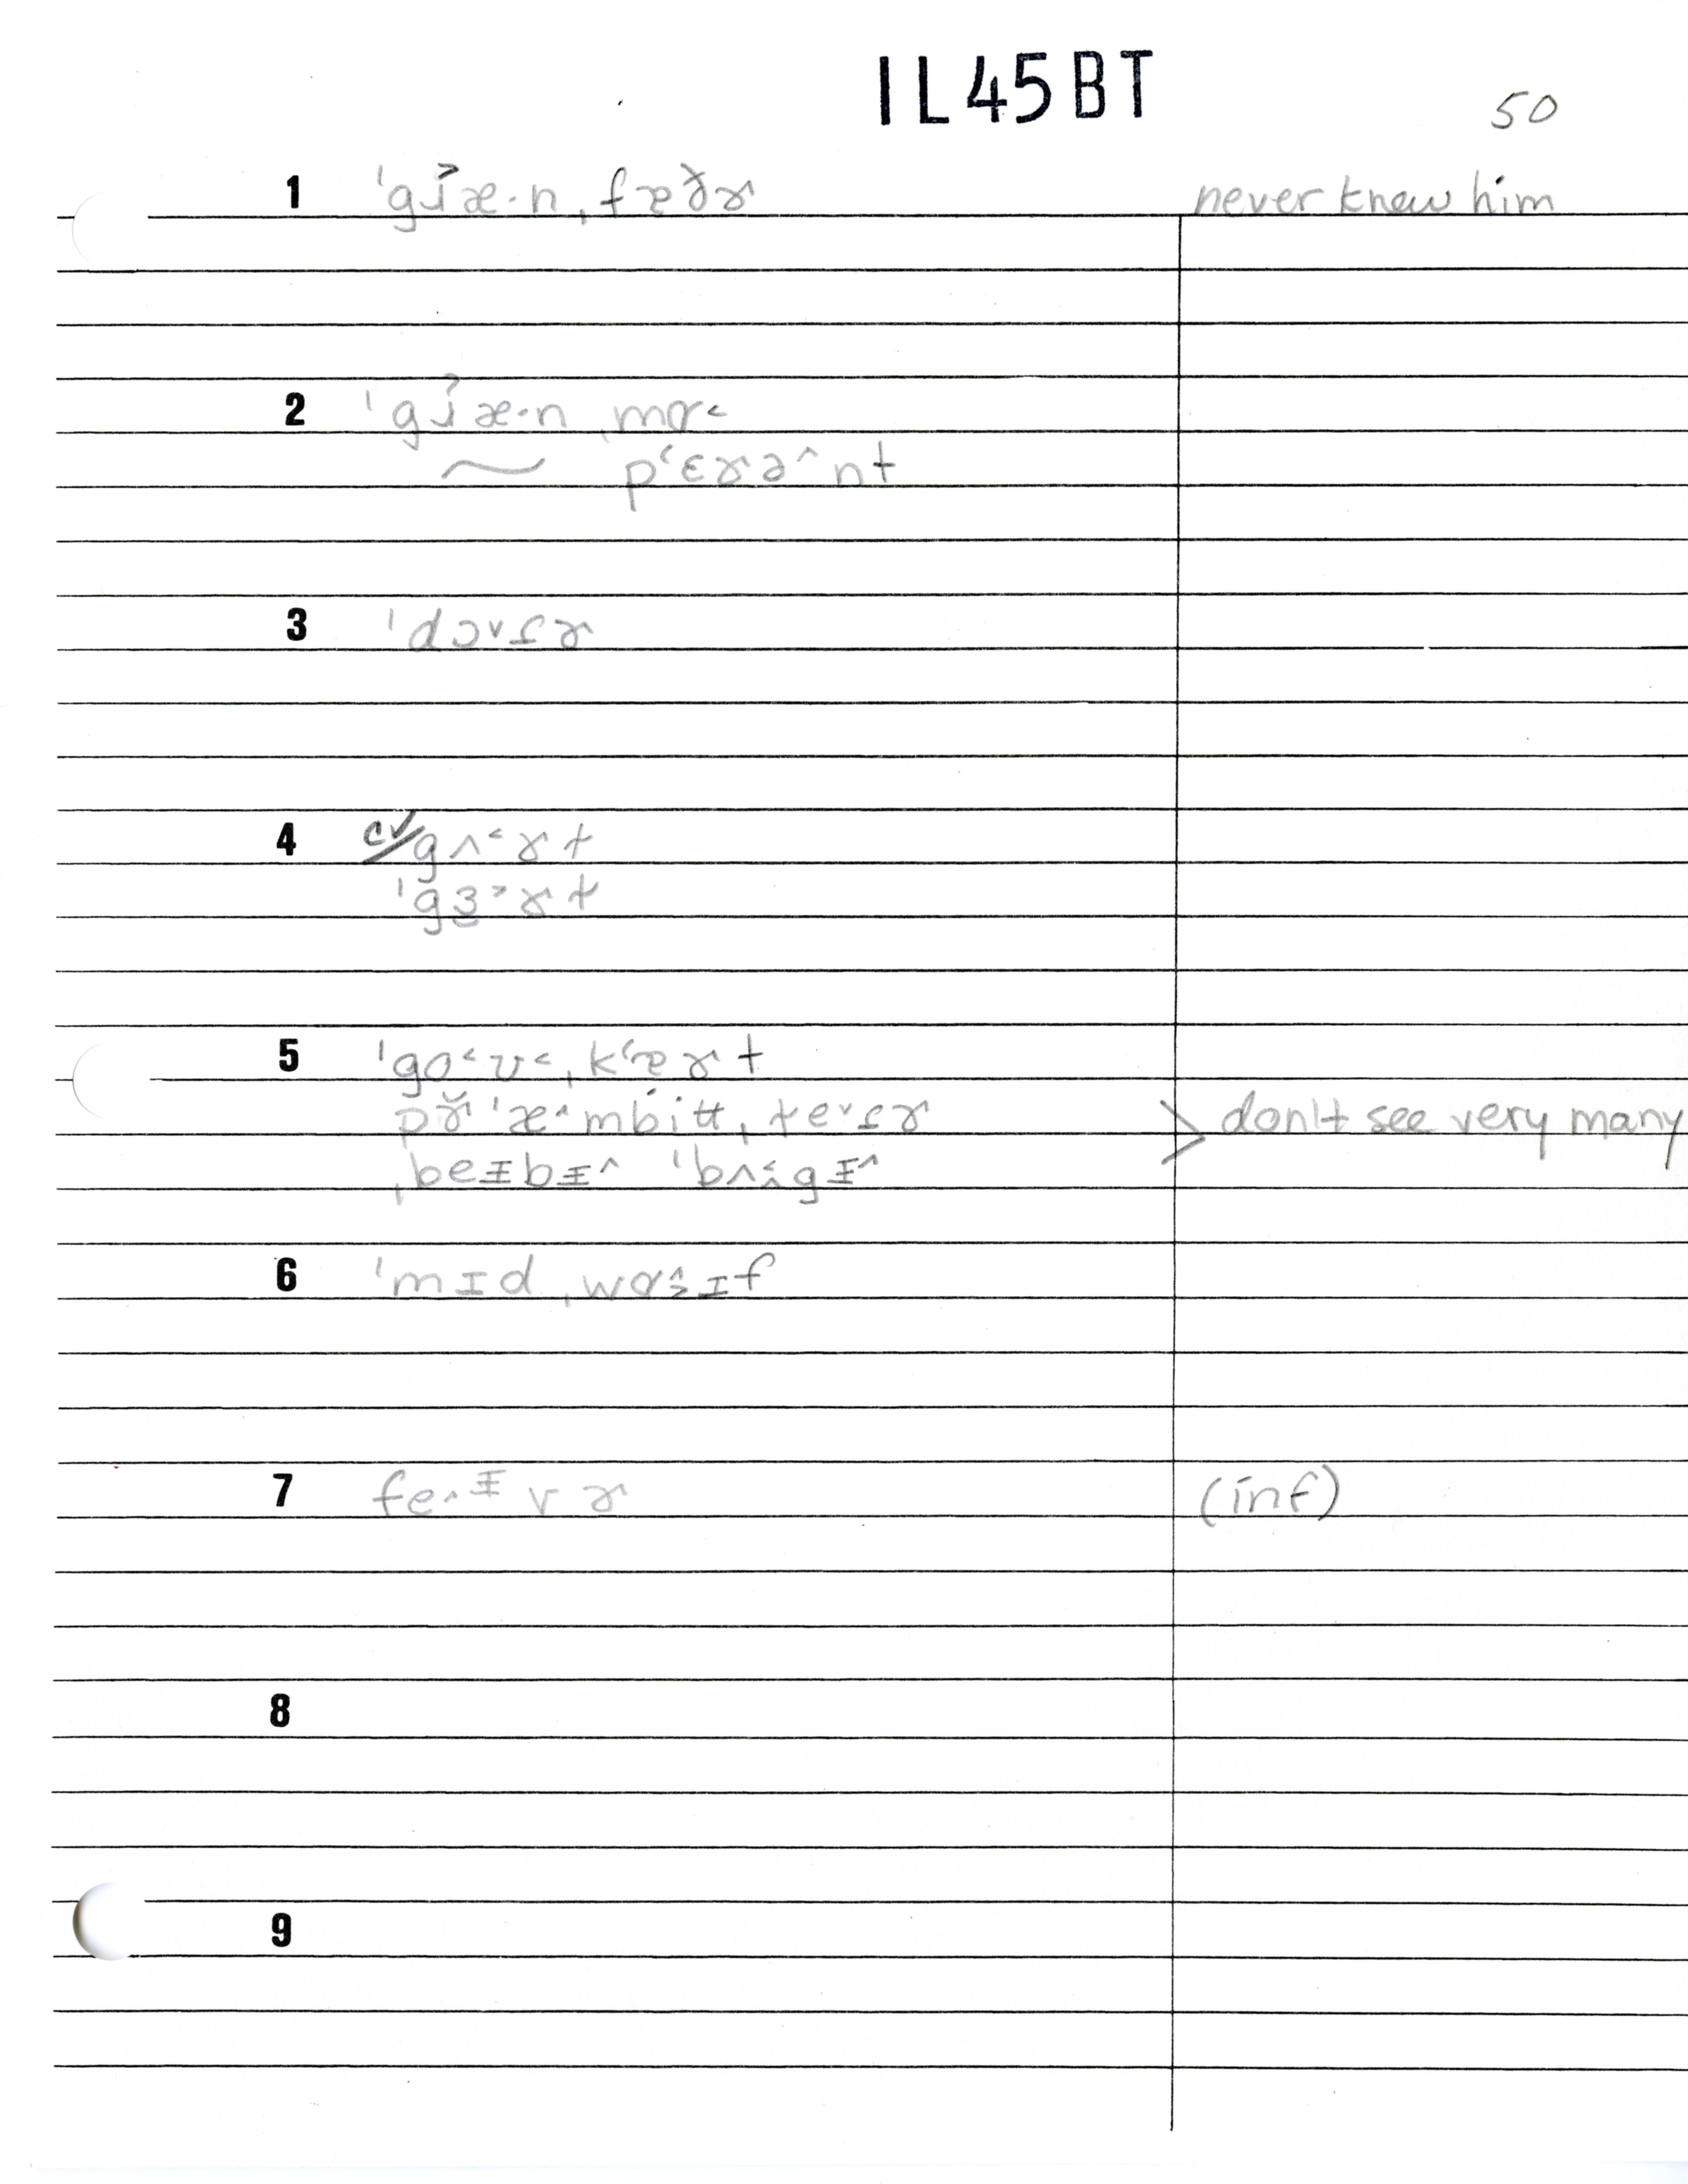 IL45BT
50
1 ˈgɹ̉æ·n ˌfɐðɚ never knew him
2 ˈgɹ̉æ·n ˌmɑ˂
~ pʻɛɚə^nt
3 ˈdɔ˅ɾɚ
4 cv/ gʌ˂ɚt
ˈgɜ˃ɚt
5 ˈgo˂ʊ˂ ˌkʻɐɚt
ˌbeɪbɪ^ ˈbʌ˂gɪ^
don't see very many
6 ˈmɪd
7 fe^ɪvɚ (inf)
8
9